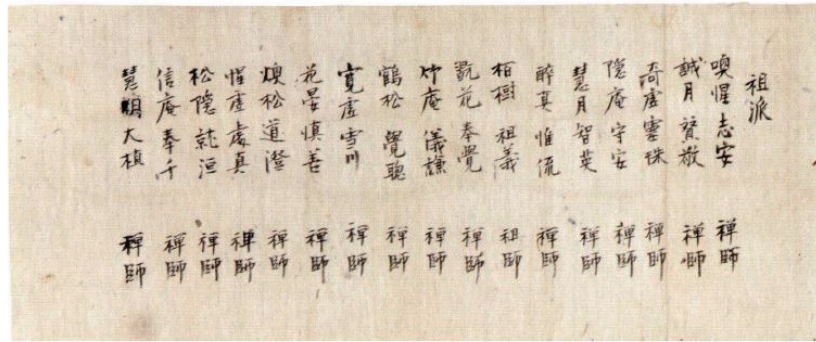 祖派
喚惺志安 禪師
誠月贇教 禪師
奇虛靈珠 禪師
隱庵守安 禪師
慧月智英 禪師
醉真惟流 禪師
栢樹祖義 祖師
翫花奉覺 禪師
竹庵儀謙 禪師
鶴松覺聰 禪師
寬虛雪川 禪師
花晏慎善 禪師
煥松道澄 禪師
惺虛處真 禪師
松隱就洹 禪師
信庵奉千 禪師
慧頤大植 禪師